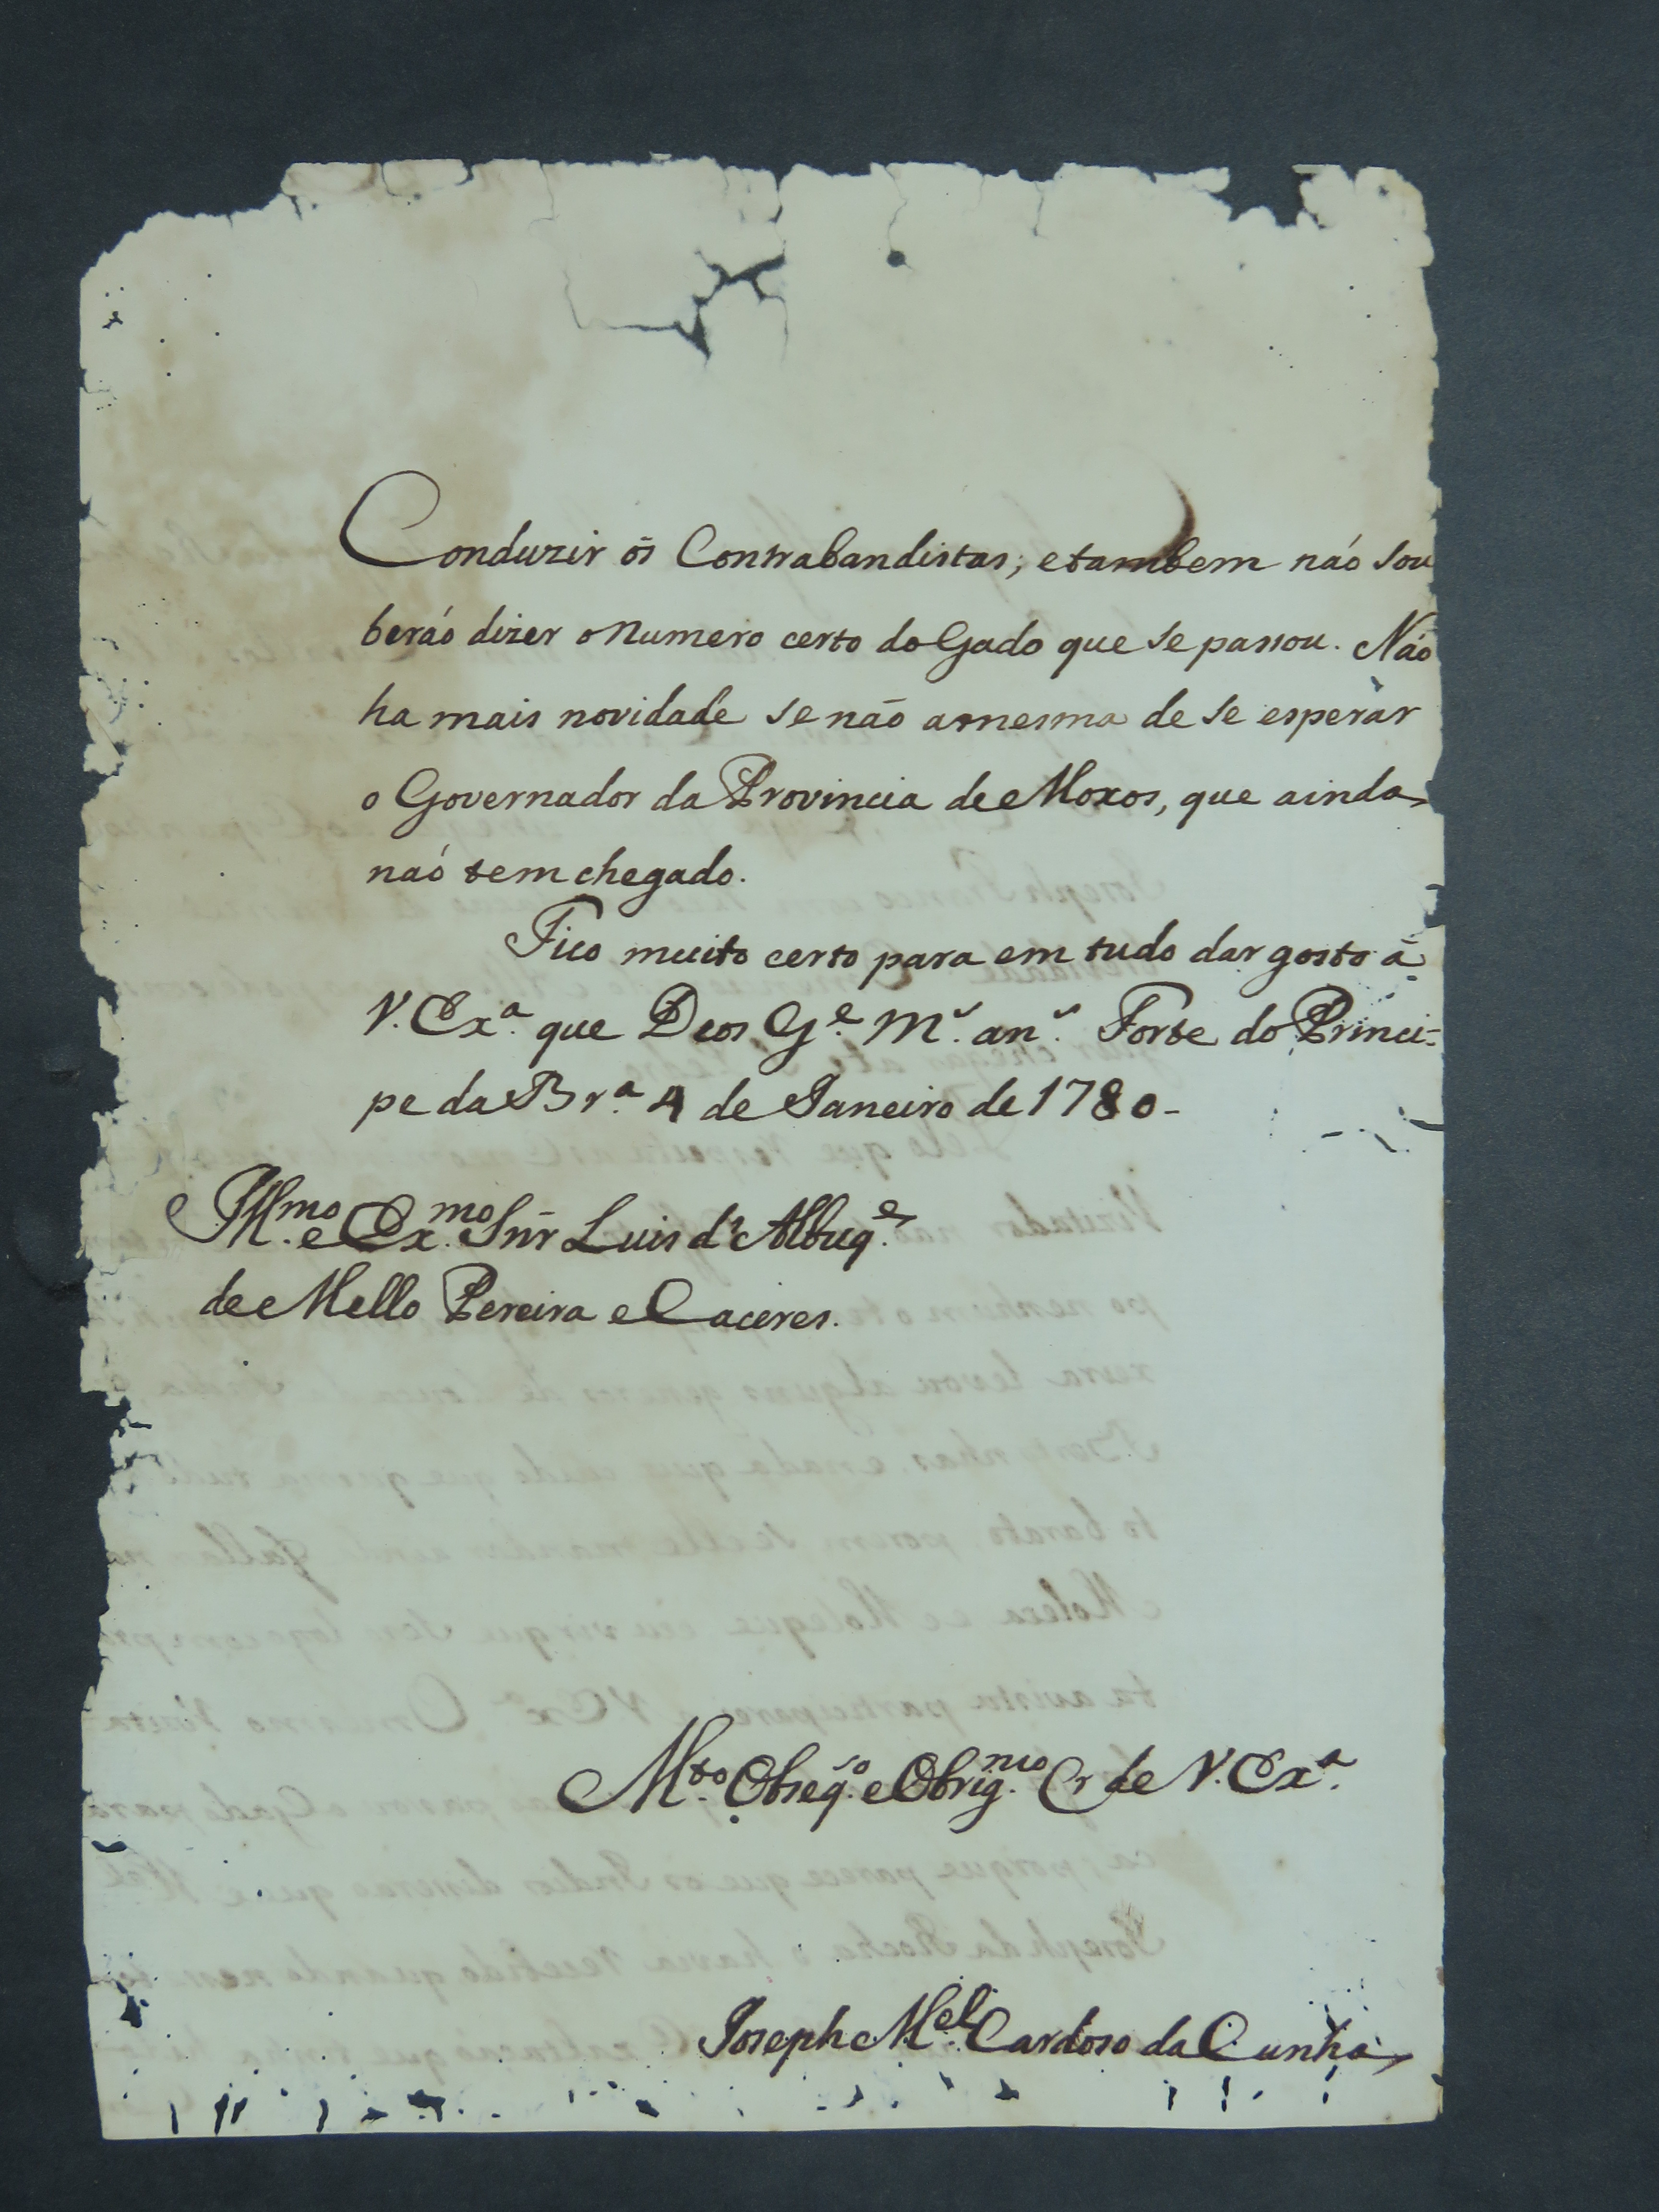 Conduzir ôs Contrabandistas; etambem naó sou
beraó dizer o Numero certo do Gado que se passou. Naó
ha mais novidade se não amesma de se esperar
o Governador da Provincia de Moxos, que ainda
naó tem chegado.
Fico muito certo para em tudo dar gosto â
V. Exª. que Deos Gᵉ. Mˢ. anˢ. Forte do Princi-
pe da Brª. 4 de Janeiro de 1780-
Illᵐᵒ. e Exᵐᵒ. Snr̃ Luis d'Albuqᵉ.
de Mello Pereira e Caceres.
Mᵗᵒ. Obseqˢᵒ. e Obrigᵐᵒ. Cr de V. Exª.
Joseph Mᵉˡ. Cardoso da Cunha